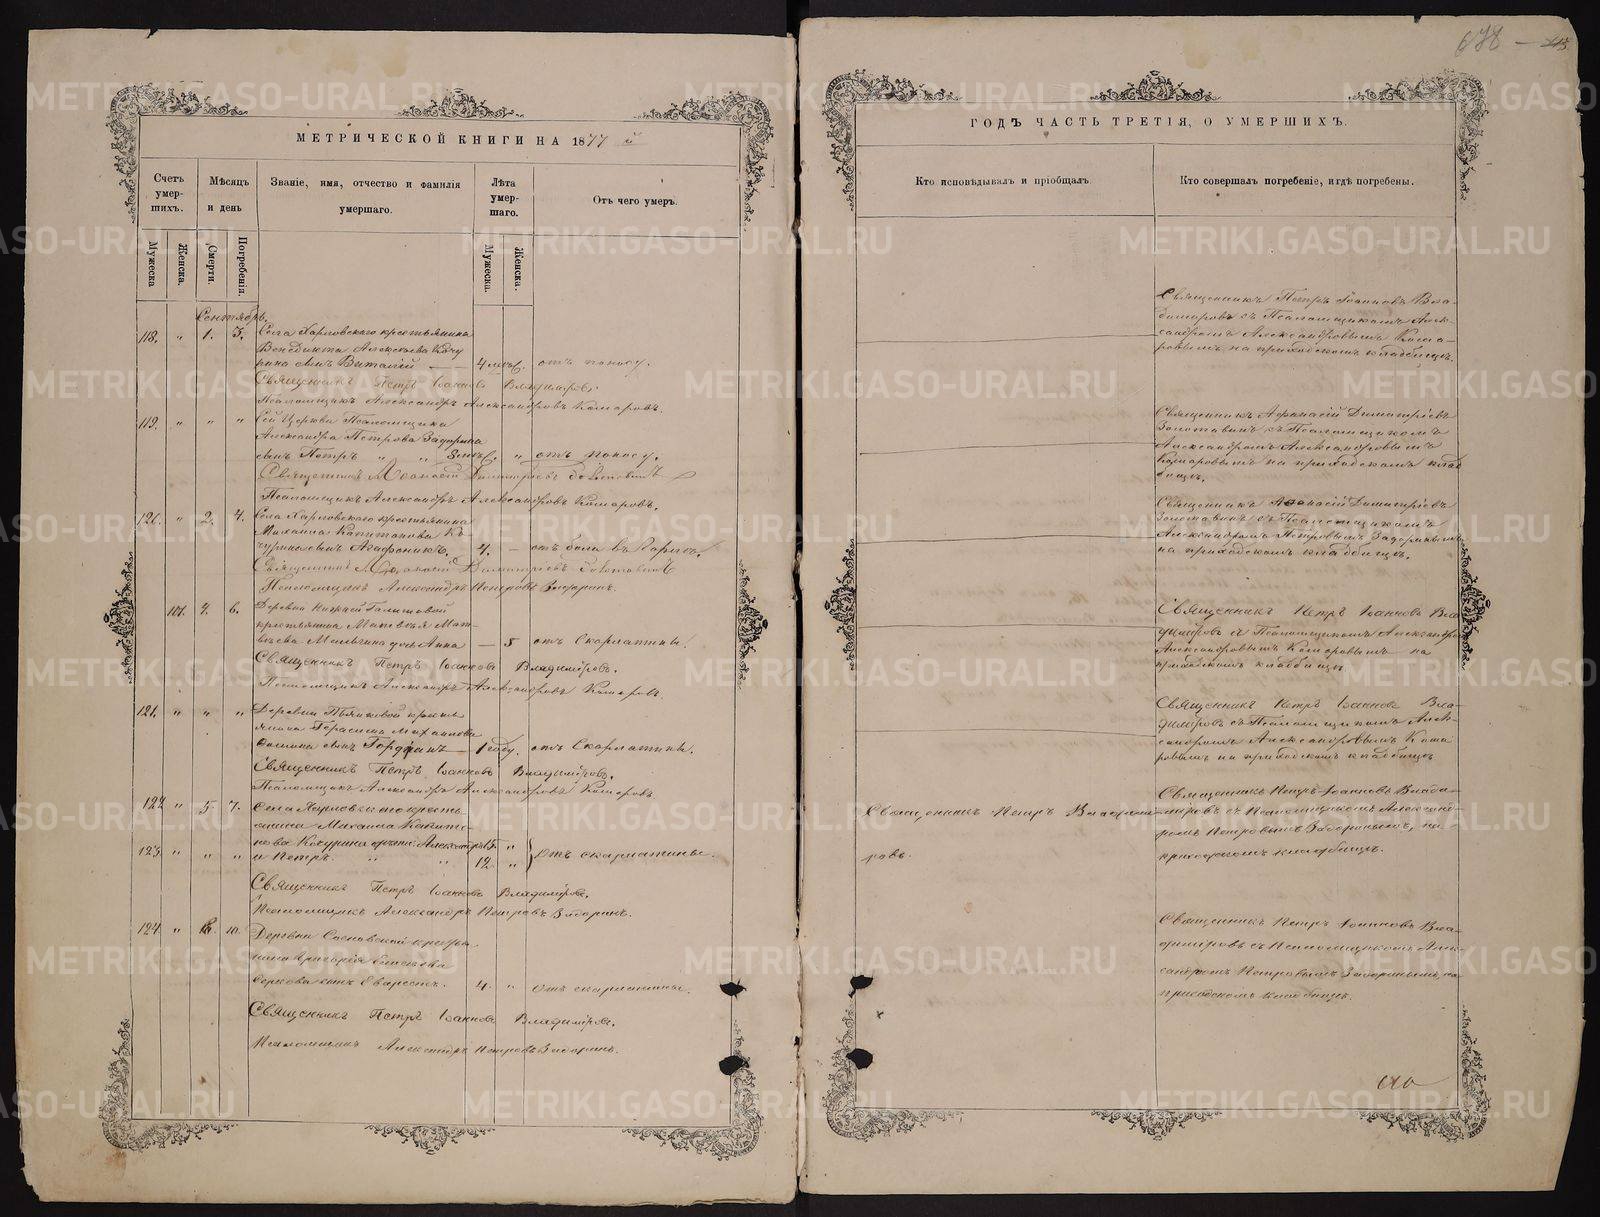 678 —
МЕТРИЧЕСКОЙ КНИГИ НА 1877 й
Счетъ умер-
шихъ.
Мѣсяцъ
и день
Званіе, имя, отчество и фамилія
умершаго.
Лѣта
умер-
шаго.
Отъ чего умеръ.
Мужеска
Женска.
Смерти.
Погребенія.
Мужеска.
Женска.
Сентябрь.
118. " 1. 3. Села Харловскаго крестьянина
Венедикта Алексѣева Кочу
рина сынъ Виталій — 4 мѣс. отъ поносу.
Священникъ Петръ Іоанновъ Владиміровъ.
Псаломщикъ Александръ Александровъ Комаровъ.
119. " " " Сей Церкви Псаломщика
Александра Петрова Задорина
сынъ Петръ " " " отъ поносу.
Священникъ Аѳанасій Димитріевъ Золотавинъ
Псаломщикъ Александръ Александровъ Комаровъ.
120. " 2. 4. Села Харловскаго крестьянина
Михаила Капитонова Ко
чурина сынъ Агафоникъ. 4. — отъ боли въ горлѣ.
Священникъ Аѳанасій Димитріевъ Золотавинъ
Псаломщикъ Александръ Петровъ Задоринъ.
101. 4. 6. Деревни
крестьянина Матвѣя Мат-
вѣева дочь Анна — 5 отъ Скарлатины.
Священникъ Петръ Іоанновъ Владиміровъ.
Псаломщикъ Александръ Александровъ Комаровъ.
121. " " " Деревни кресть
янина Герасима Михаилова
сынъ Гордіанъ — 1 году. отъ Скарлатины.
Священникъ Петръ Іоанновъ Владиміровъ.
Псаломщикъ Александръ Александровъ Комаровъ
122 " 5. 7. Села Харловскаго кресть
янина Михаила Капито
нова Кочурина дѣти: Александръ 15. "
123. " " " и Петръ. " " 12. " Отъ скарлатины.
Священникъ Петръ Іоанновъ Владиміровъ.
Псаломщикъ Александръ Петровъ Задоринъ.
124 " 10. Деревни Сосновской кресть
янина Григорія
сынъ Еварестъ. 4. " Отъ скарлатины.
Священникъ Петръ Іоанновъ Владиміровъ.
Псаломщикъ Александръ Петровъ Задоринъ.
ГОДЪ ЧАСТЬ ТРЕТІЯ, О УМЕРШИХЪ.
Кто исповѣдывалъ и пріобщалъ.
Кто совершалъ погребеніе, и гдѣ погребены.
Священникъ Петръ Іоанновъ Вла-
диміровъ съ Псаломщикомъ Алек-
сандромъ Александровымъ Кома-
ровымъ на приходскомъ кладбищѣ.
Священникъ Аѳанасій Димитріевъ
Золотавинъ съ Псаломщикомъ
Александромъ Александровымъ
Комаровымъ на приходскомъ клад
бищѣ.
Священникъ Аѳанасій Димитріевъ
Золотавинъ съ Псаломщикомъ
Александромъ Петровымъ Задоринымъ
на приходскомъ кладбищѣ.
Священникъ Петръ Іоанновъ Вла
диміровъ съ Псаломщикомъ Александро
Александровымъ Комаровымъ на
приходскомъ кладбищѣ
Священникъ Петръ Іоанновъ Вла-
диміровъ съ Псаломщикомъ Алек-
сандромъ Александровымъ Кома
ровымъ на приходскомъ кладбищѣ
Священникъ Петръ Владими
ровъ.
Священникъ Петръ Іоанновъ Влади-
міровъ съ Псаломщикомъ Александ-
ромъ Петровымъ Задоринымъ, на
приходскомъ кладбищѣ.
Священникъ Петръ Іоанновъ Вла-
диміровъ съ Псаломщикомъ Алек-
сандромъ Петровымъ Задоринымъ, на
приходскомъ кладбищѣ.
METRIKI.GASO-URAL.RU